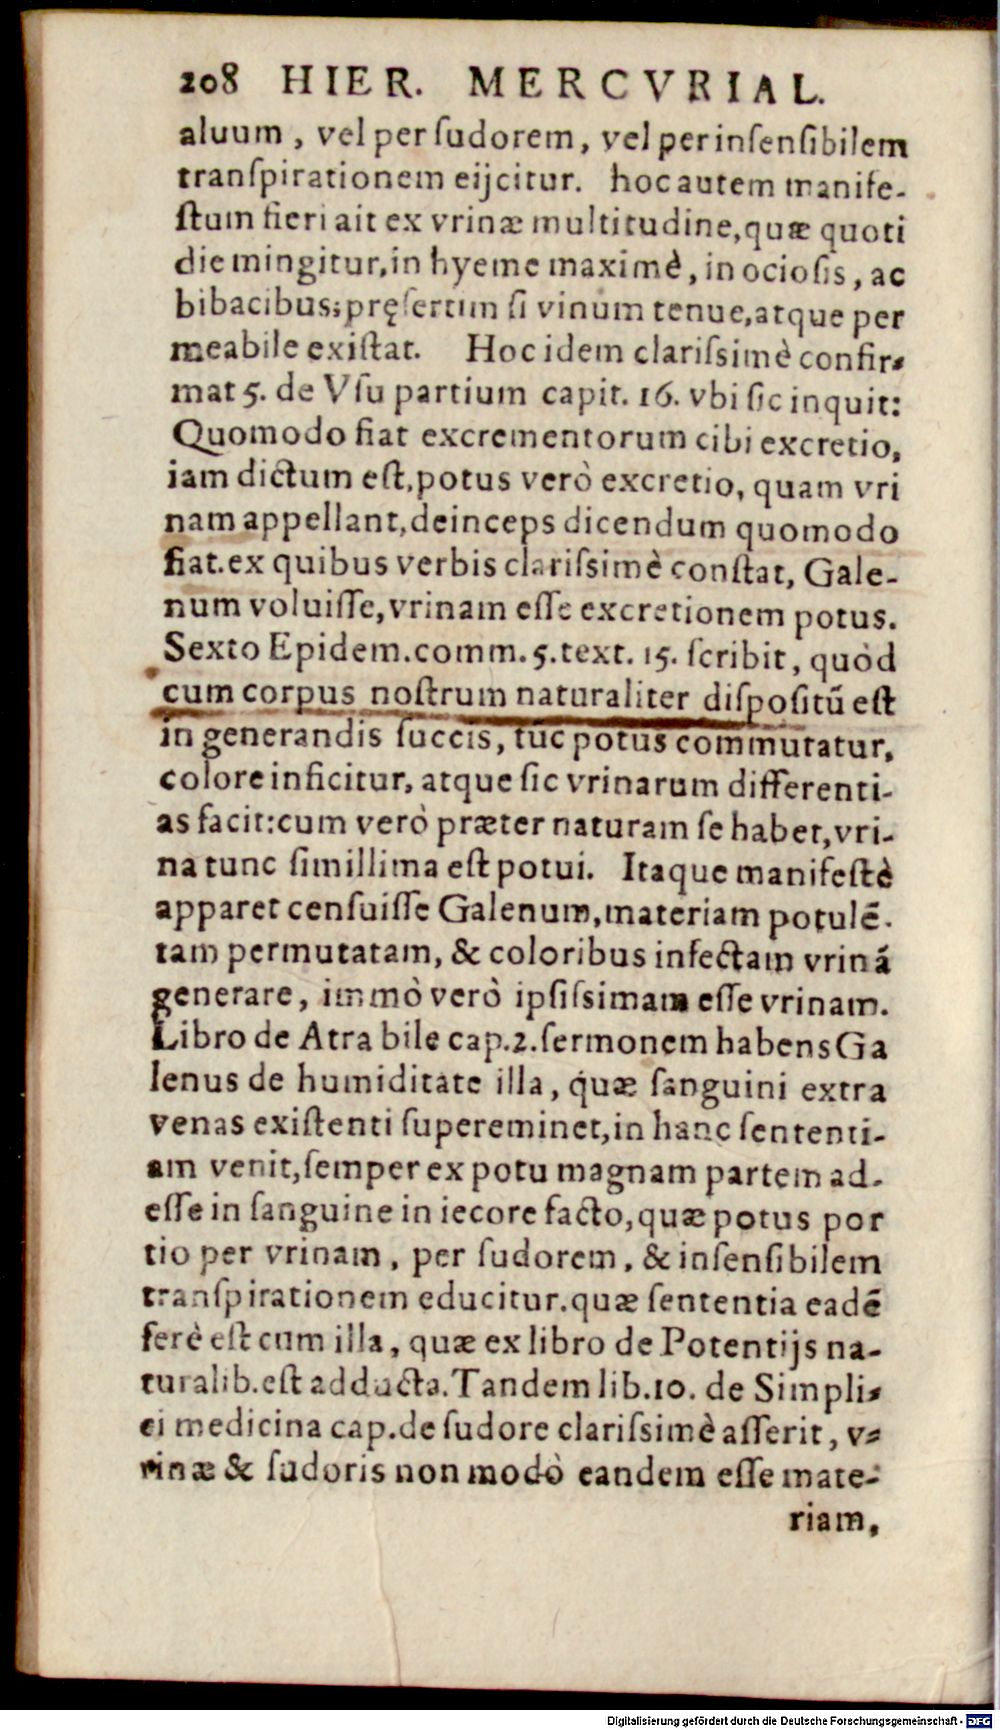 208 HIER. MERCVRIAL.
aluum, vel per ſudorem, vel per inſenſibilem
tranſpirationem eijcitur. hoc autem manife-
ſtum fieri ait ex vrinæ multitudine, quæ quoti
die mingitur, in hyeme maximè, in ocioſis, ac
bibacibus; pręſertim ſi vinum tenue, atque per
meabile exiſtat. Hoc idem clariſsimè confir-
mat 5. de Vſu partium capit. 16. vbi ſic inquit:
Quomodo fiat excrementorum cibi excretio,
iam dictum eſt, potus verò excretio, quam vri
nam appellant, deinceps dicendum quomodo
fiat. ex quibus verbis clariſsimè conſtat, Gale-
num voluiſſe, vrinam eſſe excretionem potus.
Sexto Epidem. comm. 5. text. 15. ſcribit, quòd
cum corpus noſtrum naturaliter diſpoſitũ eſt
in generandis ſuccis, tũc potus commutatur,
colore inficitur, atque ſic vrinarum differenti-
as facit: cum verò præter naturam ſe habet, vri-
na tunc ſimillima eſt potui. Itaque manifeſtè
apparet cenſuiſſe Galenum, materiam potulẽ-
tam permutatam, & coloribus infectam vrinã
generare, immò verò ipſiſsimam eſſe vrinam.
Libro de Atra bile cap. 2. ſermonem habens Ga
lenus de humiditate illa, quæ ſanguini extra
venas exiſtenti ſupereminet, in hanc ſententi-
am venit, ſemper ex potu magnam partem ad-
eſſe in ſanguine in iecore facto, quæ potus por
tio per vrinam, per ſudorem, & inſenſibilem
tranſpirationem educitur. quæ ſententia eadẽ
ferè eſt cum illa, quæ ex libro de Potentijs na-
turalib. eſt adducta. Tandem lib. 10. de Simpli-
ci medicina cap. de ſudore clariſsimè aſſerit, v-
rinæ & ſudoris non modò eandem eſſe mate-
riam,
Digitalisierung gefördert durch die Deutsche Forschungsgemeinschaft - DFG